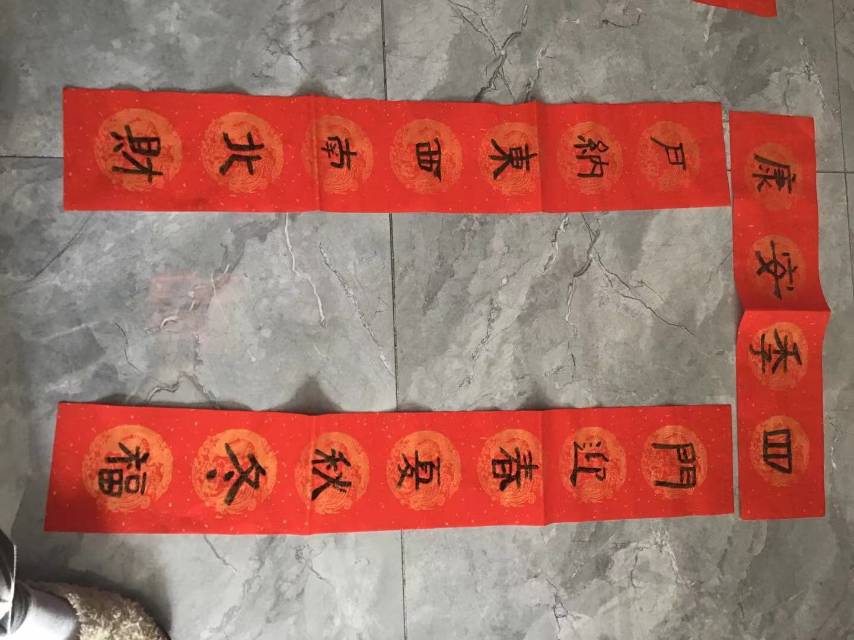 四季安康
門迎春夏秋冬福
户納東西南北財